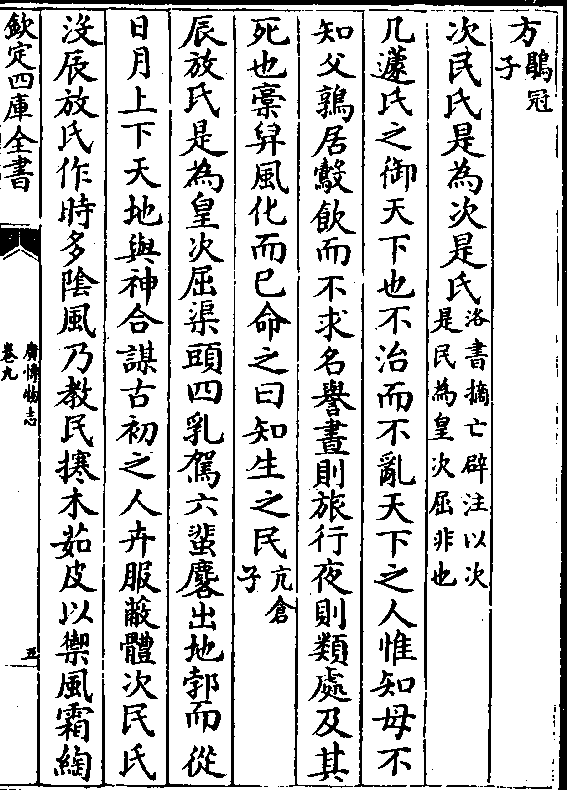 方鶡冠子
次民氏是為次是氏洛書摘亡辟注以次是民為皇次屈非也
几蘧氏之御天下也不治而不亂天下之人惟知母不
知父鶉居鷇飲而不求名譽晝則旅行夜則類處及其
死也槀舁風化而已命之曰知生之民亢倉子
辰放氏是為皇次屈渠頭四乳駕六蜚麐出地郛而從
日月上下天地與神合謀古初之人卉服蔽體次民氏
沒辰放氏作時多陰風乃教民搴木茹皮以禦風霜綯
欽定四庫全書
廣博物志
卷九
五